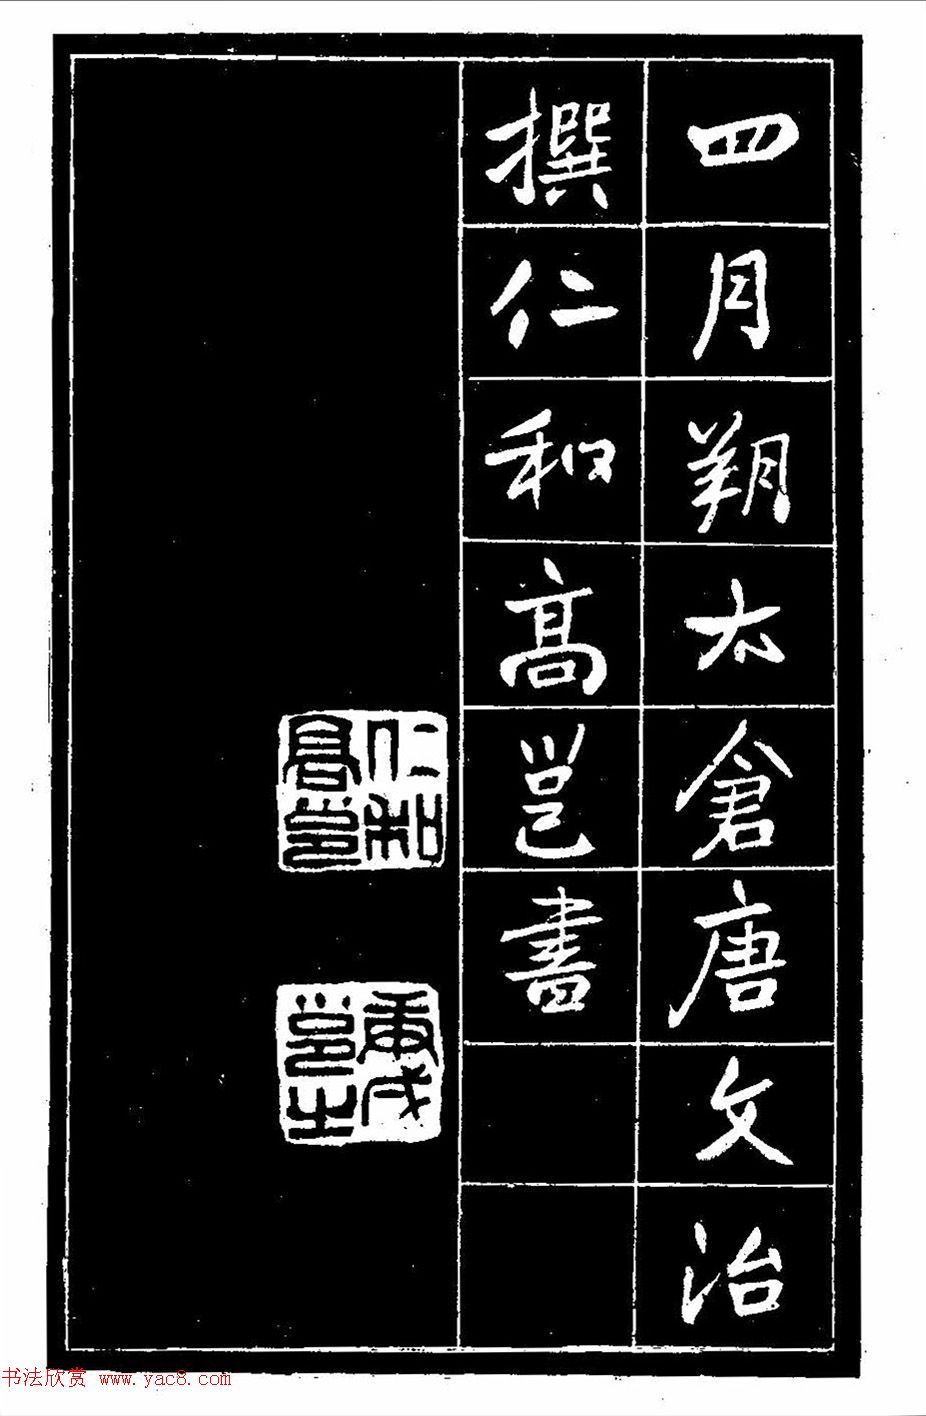 四月朔太倉唐文治
撰仁和高邕書
仁和
高邕
庚戌
邕之
书法欣赏 www.yac8.com